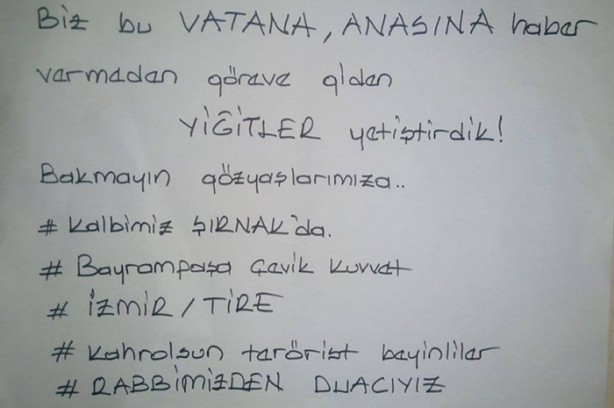 Biz bu VATANA, ANASINA haber
varmadan göreve giden
YİĞİTLER yetiştirdik!
Bakmayın gözyaşlarımıza..
# Kalbimiz ŞIRNAK'da.
# Bayrampaşa Çevik Kuvvet
# İZMİR / TİRE
# Kahrolsun terörist beyinliler
# RABBİMİZDEN DUACIYIZ